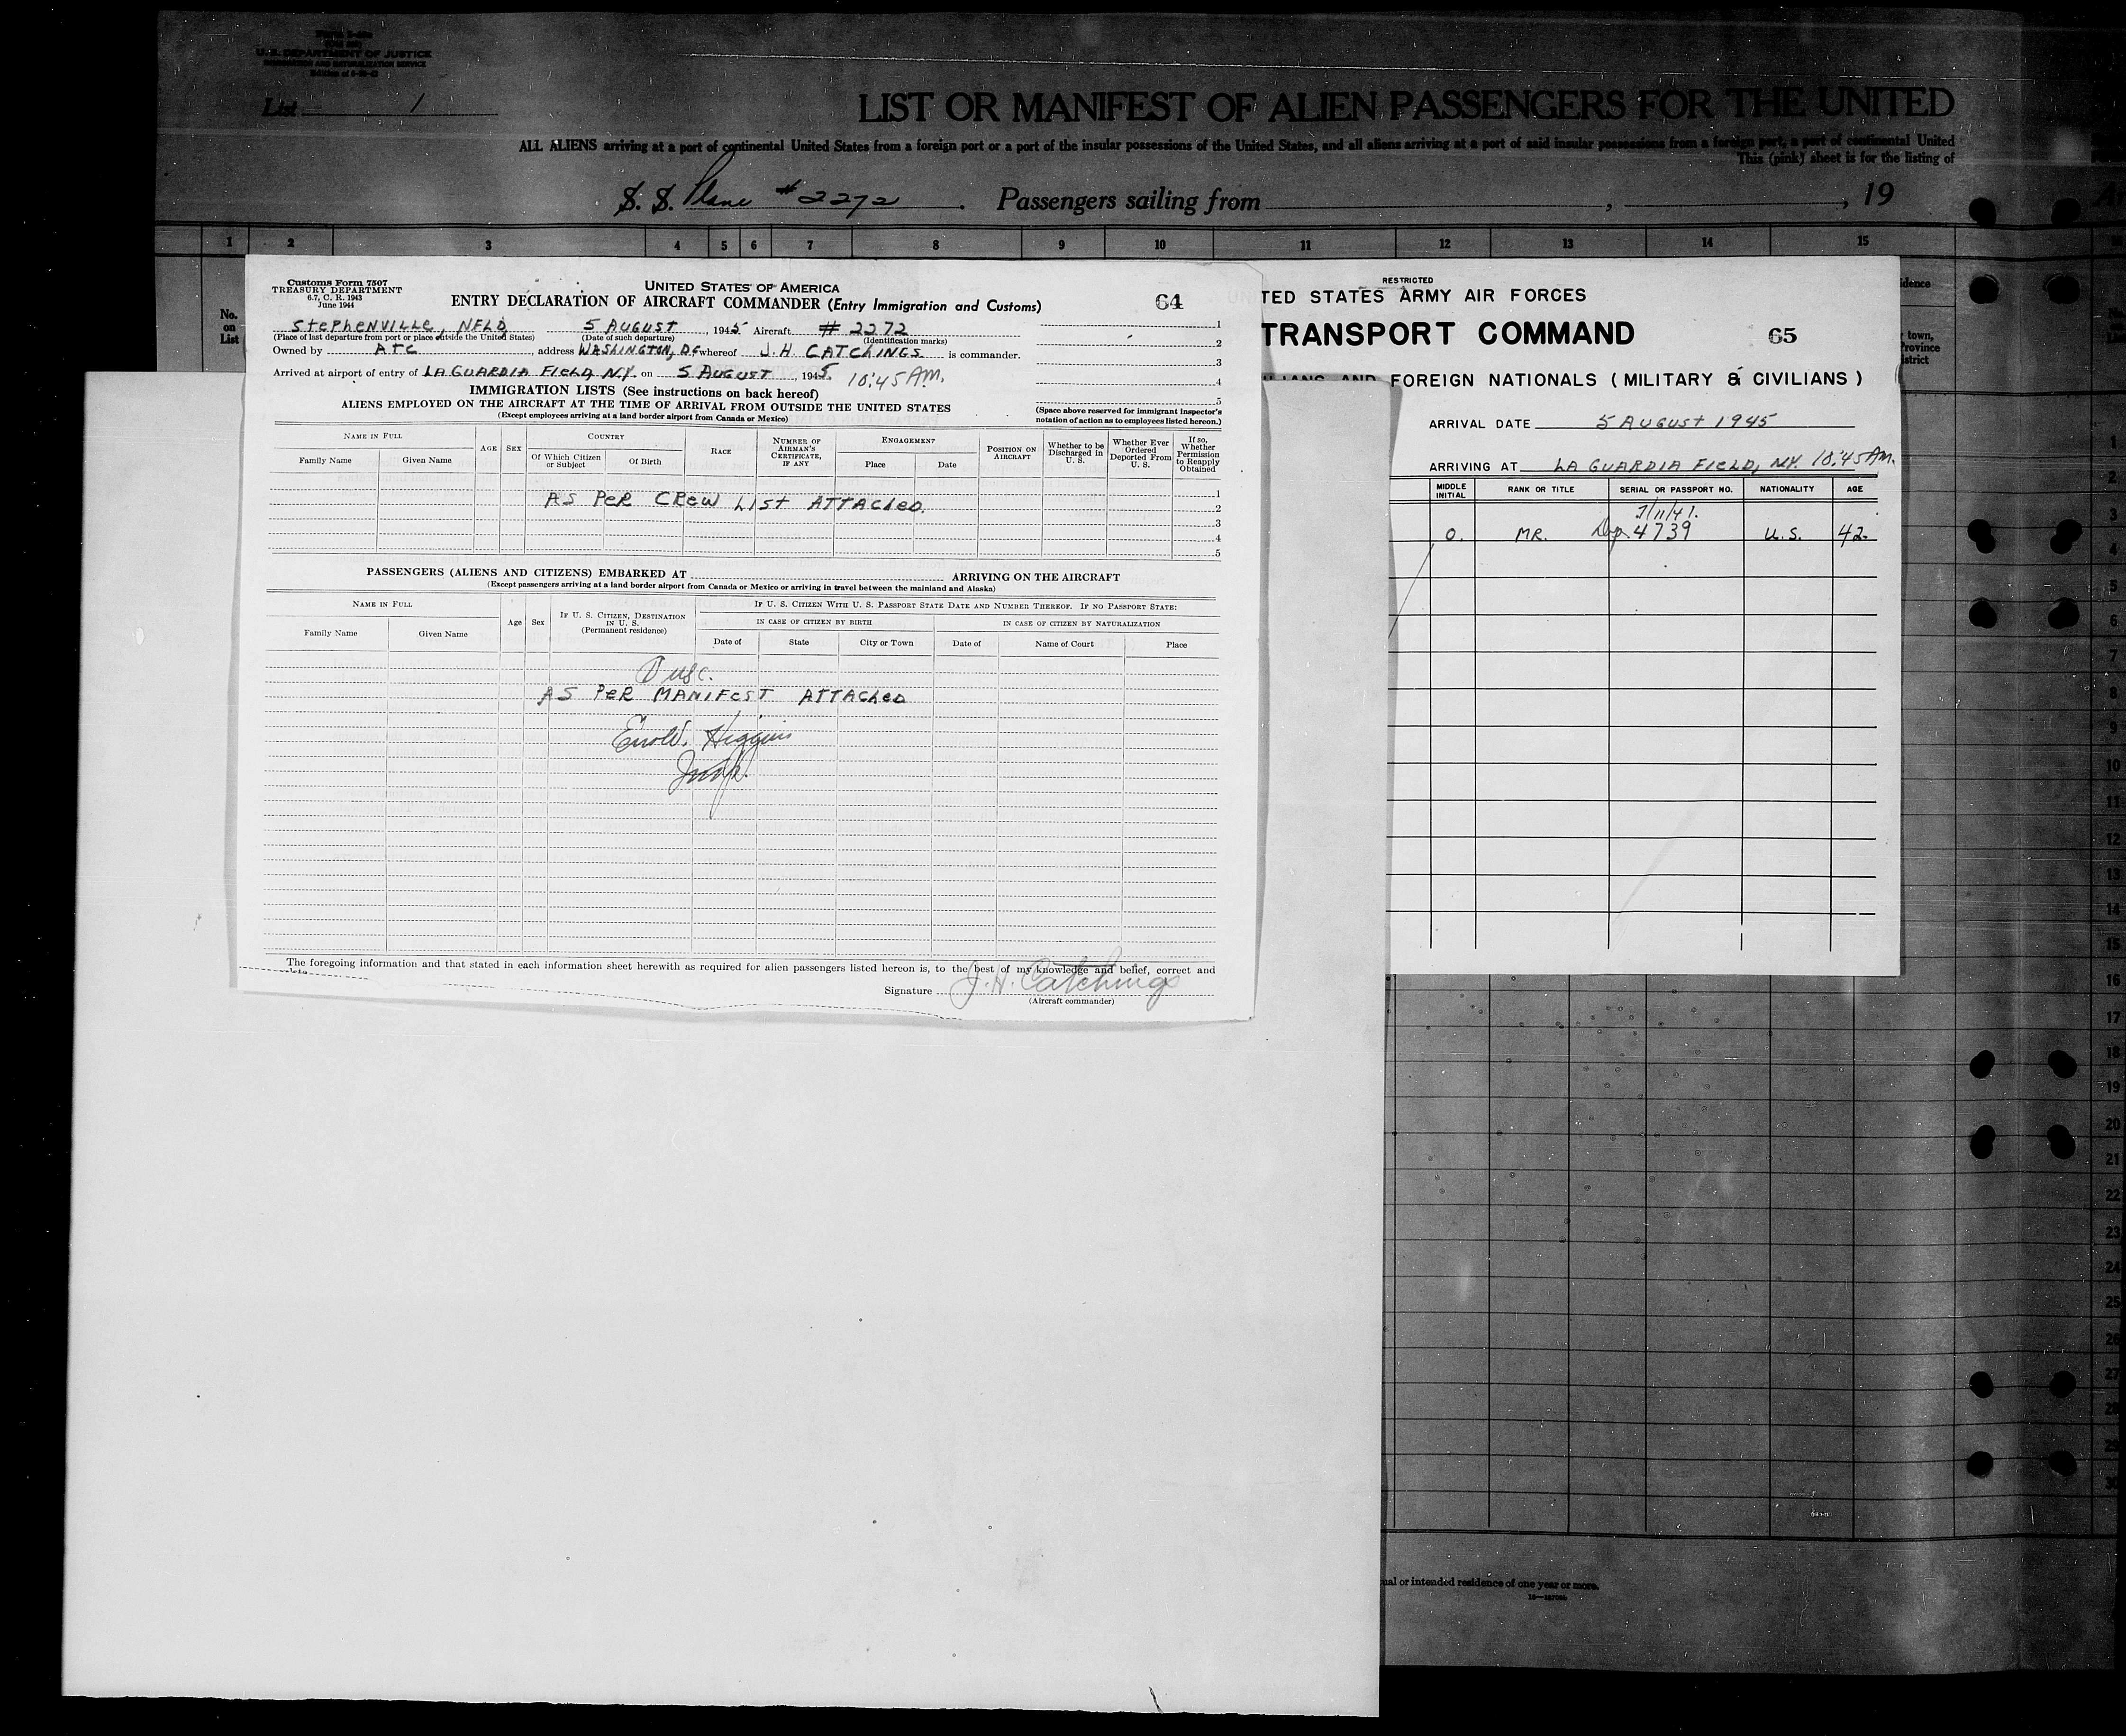 U. S. DEPARTMENT OF JUSTICE
IMMIGRATION AND NATURALIZATION SERVICE
List 1
LIST OR MANIFEST OF ALIEN PASSENGERS FOR THE UNITED
ALL ALIENS arriving at a port of continental United States from a foreign port or a port of the insular possessions of the United States, and all aliens arriving at a port of said insular possessions from a foreign port, a port of continental United
This (pink) sheet is for the listing of
S. S. Plane # 2272 . Passengers sailing from , , 19
1 2 3 4 5 6 7 8 9 10 11 12 13 14 15
No.
on
List
Customs Form 7507
TREASURY DEPARTMENT
6.7, C. R. 1943
June 1944
UNITED STATES OF AMERICA
ENTRY DECLARATION OF AIRCRAFT COMMANDER (Entry Immigration and Customs)
64
StePhenVILLe, NFLD 5 AUGUST , 1945 Aircraft # 2272
(Place of last departure from port or place outside the United States) (Date of such departure) (Identification marks)
Owned by ATC , address WAShINGTON, D.C whereof J. H. CATChINGS is commander.
Arrived at airport of entry of LA GUARDIA FIELD, N.Y. on 5 AUGUST , 1945. 10:45 AM.
1
2
3
4
5
IMMIGRATION LISTS (See instructions on back hereof)
ALIENS EMPLOYED ON THE AIRCRAFT AT THE TIME OF ARRIVAL FROM OUTSIDE THE UNITED STATES
(Except employees arriving at a land border airport from Canada or Mexico)
(Space above reserved for immigrant inspector's
notation of action as to employees listed hereon.)
NAME IN FULL AGE SEX COUNTRY RACE NUMBER OF AIRMAN'S CERTIFICATE, IF ANY ENGAGEMENT POSITION ON AIRCRAFT Whether to be Discharged in U. S. Whether Ever Ordered Deported From U. S. If so, Whether Permission to Reapply Obtained
Family Name Given Name Of Which Citizen or Subject Of Birth Place Date
1
AS PeR CReW LISt ATTAChed. 2
3
4
5
PASSENGERS (ALIENS AND CITIZENS) EMBARKED AT ARRIVING ON THE AIRCRAFT
(Except passengers arriving at a land border airport from Canada or Mexico or arriving in travel between the mainland and Alaska)
NAME IN FULL Age Sex IF U. S. CITIZEN, DESTINATION IN U. S. (Permanent residence) IF U. S. CITIZEN WITH U. S. PASSPORT STATE DATE AND NUMBER THEREOF. IF NO PASSPORT STATE:
IN CASE OF CITIZEN BY BIRTH IN CASE OF CITIZEN BY NATURALIZATION
Family Name Given Name Date of State City or Town Date of Name of Court Place
AS PeR MANIFeST ATTACheD
Higgins
The foregoing information and that stated in each information sheet herewith as required for alien passengers listed hereon is, to the best of my knowledge and belief, correct and
Signature J. H. Catchings
(Aircraft commander)
RESTRICTED
TED STATES ARMY AIR FORCES
TRANSPORT COMMAND
65
AND FOREIGN NATIONALS (MILITARY & CIVILIANS)
ARRIVAL DATE 5 AUGUST 1945
ARRIVING AT LA GUARDIA FIELD, N.Y. 10:45 AM.
MIDDLE INITIAL RANK OR TITLE SERIAL OR PASSPORT NO. NATIONALITY AGE
7/11/41.
O. MR. Dup. 4739 U.S. 42
idence
town,
Province
istrict
1
2
3
4
5
6
7
8
9
10
11
12
13
14
15
16
17
18
19
20
21
22
23
24
25
26
27
28
29
30
ual or intended residence of one year or more.